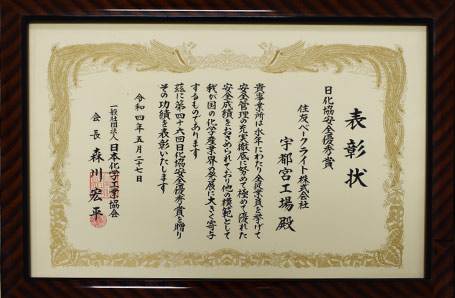 表彰状
日化協安全優秀賞
住友ベークライト株式会社
宇都宮工場殿
貴事業所は永年にわたり全従業員を挙げて
安全管理の充実徹底に努めて極めて優れた
安全成績をおさめられており他の模範として
我が国の化学産業界の発展に大きく寄与
するものであります
茲に第四十六回日化協安全優秀賞を贈り
その功績を表彰いたします
令和四年五月二十七日
一般社団法人日本化学工業協会
会長 森川宏平